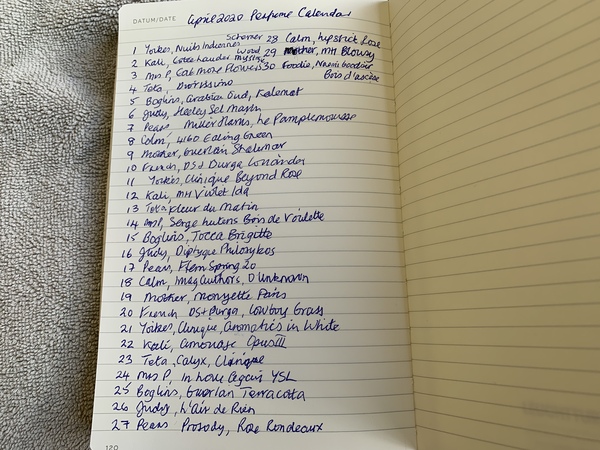 DATUM/DATE
April 2020 Perfume Calendar
1 Yorkes, Nuits Indiennes Scherrer
2 Kali, Estee Lauder Mystic
3 Mrs P, Cab more Flowers
4 Teta, Diorissimo
5 Boglins, Arabian Oud, Kalemat
6 Judy, Heeley Sel Marin
7 Pears Miller Harris, Le Pamplemousse
8 Colm, 4160 Ealing Green
9 Mother, Guerlain Shalimar
10 French, DS+ Durga Coriander
11 Yorkes, Clinique Beyond Rose
12 Kali, MH Violet Ida
13 Teta, Fleur du Matin
14 Mrs P, Serge Lutens Bois de Violette
15 Boglins, Tocca Brigitte
16 Judy, Diptyque Philosykos
17 Pears, Ffern Spring 20
18 Calm, Imag Authors, O Unknown
19 Mother, Monyette Paris
20 French DS+Durga, Cowboy Grass
21 Yorkes, Clinique, Aromatics in White
22 Kali, Amouage Opus III
23 Teta, Calyx, Clinique
24 Mrs P, In Love Again YSL
25 Boglins, Guerlain Terracotta
26 Judy, L'Air de Rien
27 Pears Prosody, Rose Rondeaux
28 Calm, Lipstick Rose
29 Mother, MH Blousy
30 Foodie, Naomi Goodsir
Bois d'ascèse
120